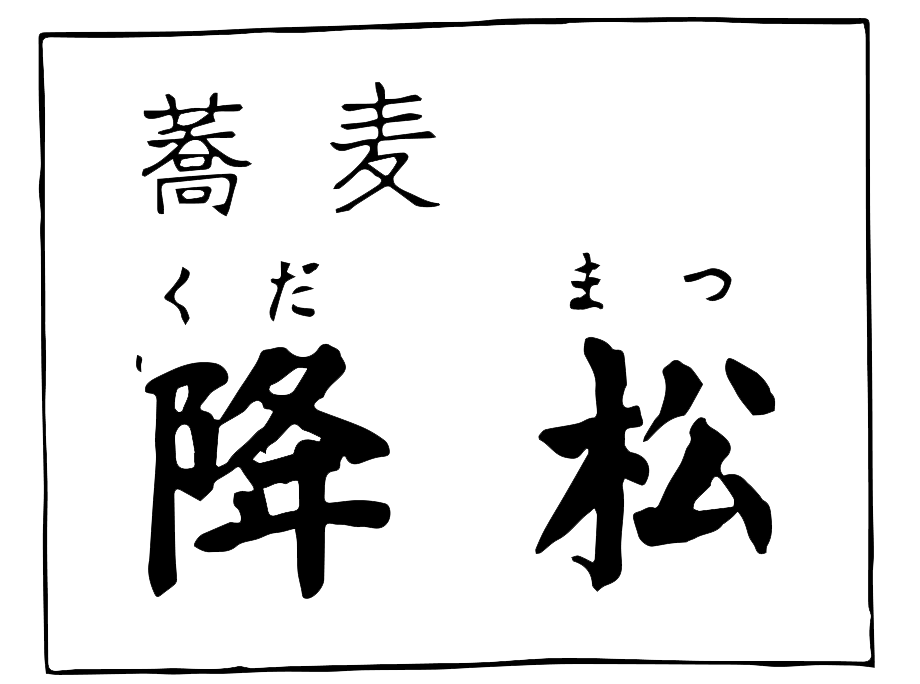 蕎麦
くだ まつ
降松